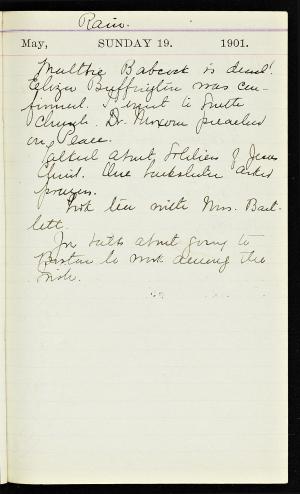 Rain.
May, SUNDAY 19. 1901.
Maltbie Babcock is dead!
Eliza Buffington was con-
firmed. I went to
Church. Dr. preached
on Peace.
talked about Soldiers of Jesus
Christ. One asked
prayers.
Took tea with Mrs. Bart-
lett.
Joe talks about going to
Boston to work among the
Irish.